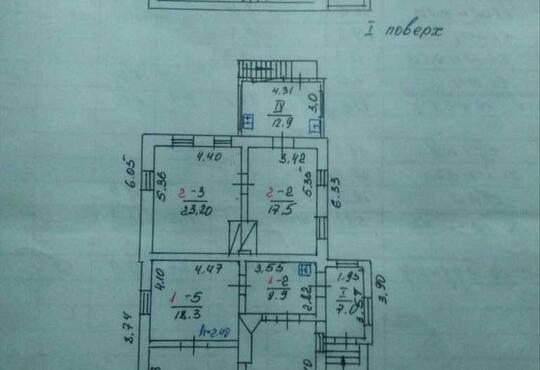 I поверх
4.31
3,0
IV
12.9
4.40
3.42
6.05
5.36
2-3
23.20
2-2
17.5
5.35
6.33
4.47
3,55
1.95
4.10
1-5
18.3
1-2
9.9
2.82
I-1
7.0
3.57
3,90
8,74
h=2.48